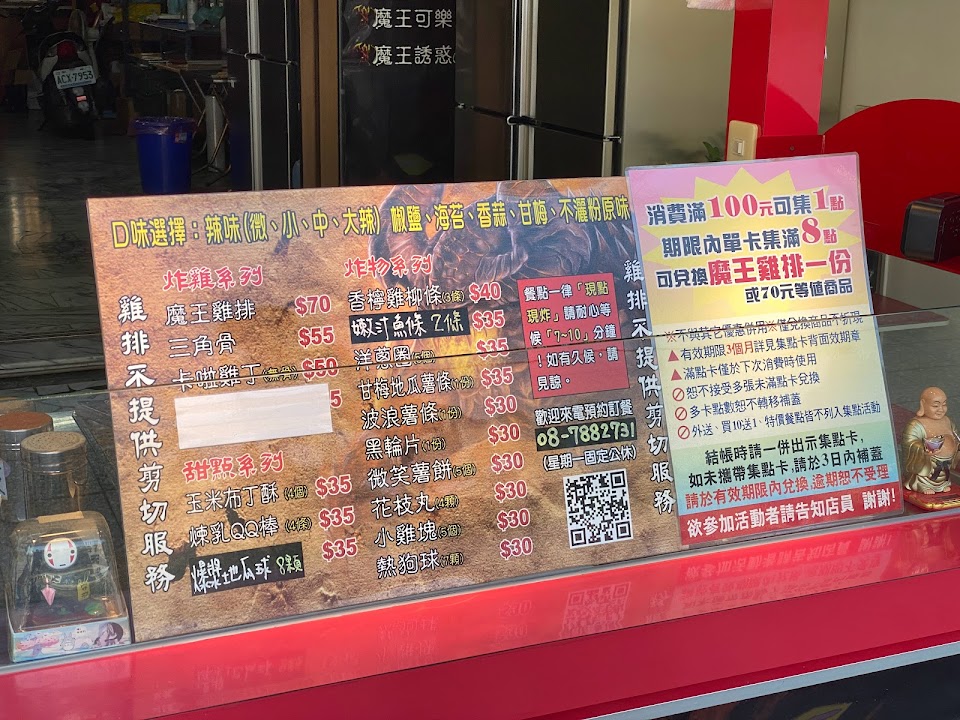 魔王可樂
魔王誘惑
ACX-7953
D味選擇：辣味(微、小、中、大辣) 椒鹽、海苔、香蒜、甘梅、不灑粉原味
雞排不提供剪切服務
炸雞系列
魔王雞排 $70
三角骨 $55
卡啦雞丁(無骨) $50
甜點系列
玉米布丁酥(4個) $35
煉乳QQ棒(4條) $35
爆漿地瓜球 8顆 $35
炸物系列
香檸雞柳條(3條) $40
嫩汁魚條 2條 $35
洋蔥圈(5個) $35
甘梅地瓜薯條(1份) $35
波浪薯條(1份) $30
黑輪片(1份) $30
微笑薯餅(5個) $30
花枝丸(4顆) $30
小雞塊(5個) $30
熱狗球(7顆) $30
餐點一律「現點
現炸」請耐心等
候「7~10」分鐘
！如有久候，請
見諒。
歡迎來電預約訂餐
08-7882731
(星期一固定公休)
雞排不提供剪切服務
消費滿100元可集1點
期限內單卡集滿8點
可兌換魔王雞排一份
或70元等值商品
※不與其它優惠併用※僅兌換商品不折現
▲有效期限3個月詳見集點卡背面效期章
▲滿點卡僅於下次消費時使用
恕不接受多張未滿點卡兌換
多卡點數恕不轉移補蓋
外送、買10送1、特價餐點皆不列入集點活動
結帳時請一併出示集點卡，
如未攜帶集點卡，請於3日內補蓋
請於有效期限內兌換，逾期恕不受理
欲參加活動者請告知店員 謝謝！